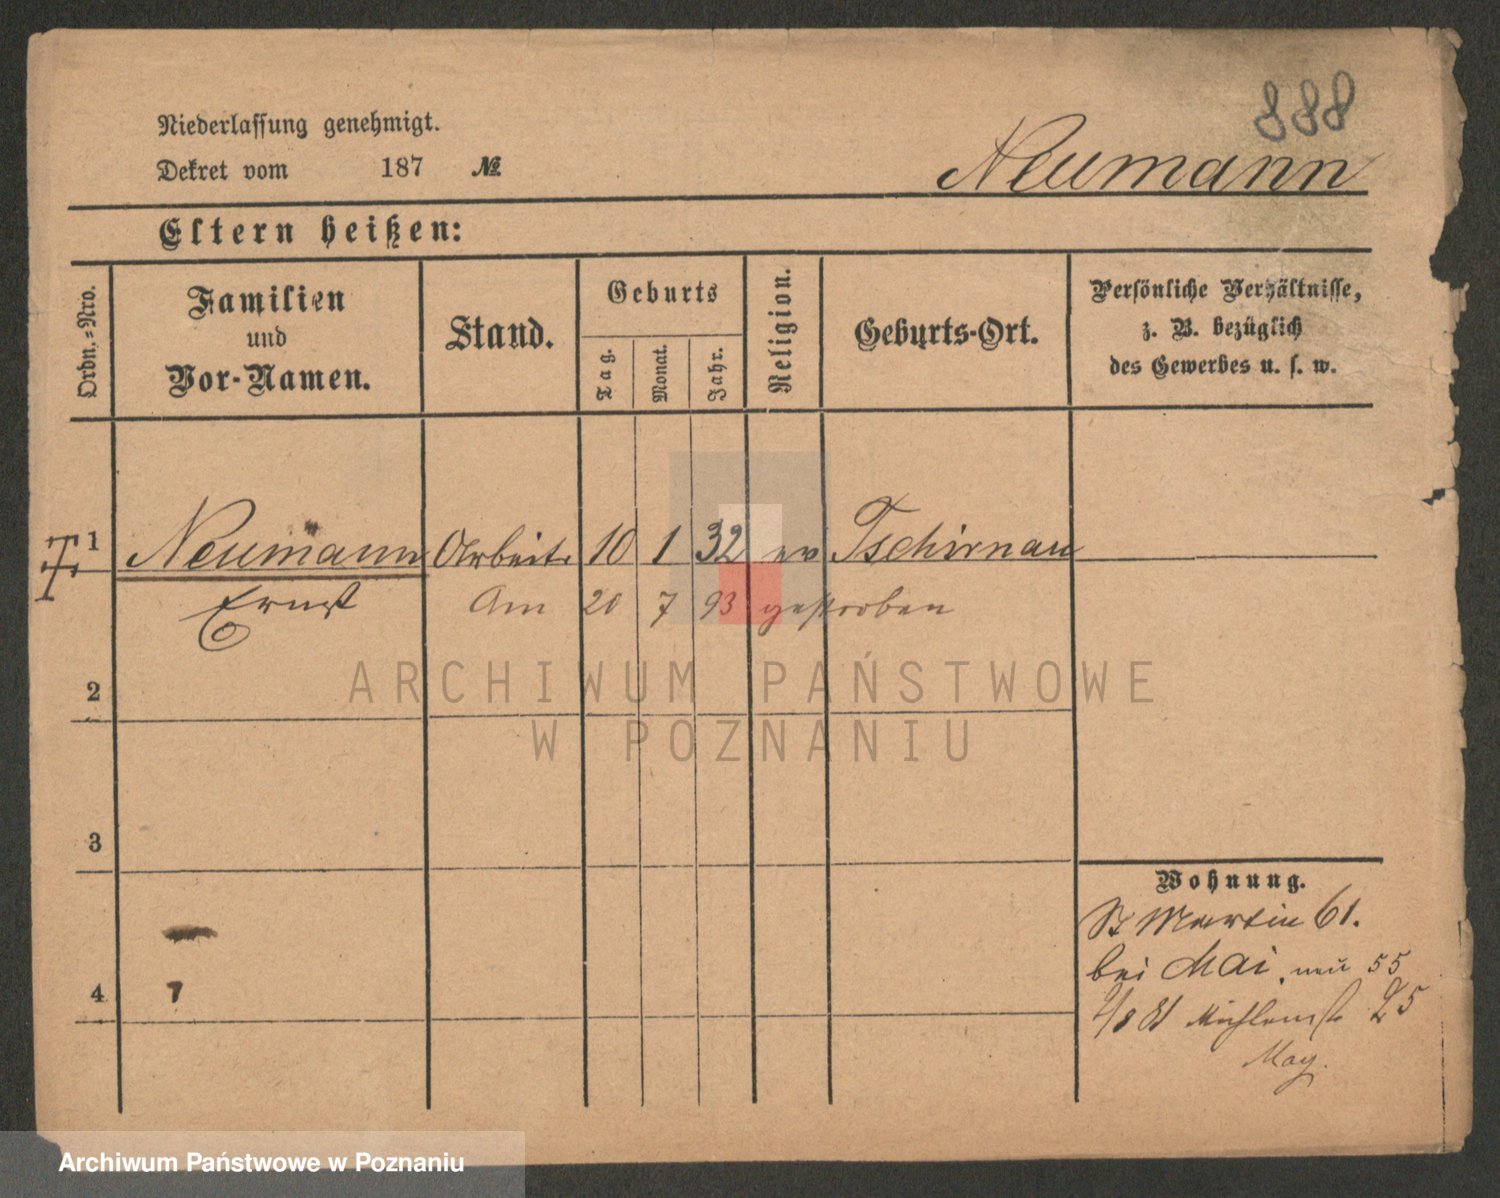 888
Niederlassung genehmigt.
Dekret vom 187 №
Neumann
Eltern heißen:
Ordn.-Nro.
Familien
und
Vor-Namen.
Stand.
Geburts
Tag.
Monat.
Jahr.
Religion.
Geburts-Ort.
Persönliche Verhältnisse,
z. B. bezüglich
des Gewerbes u. s. w.
1 Neumann Arbeit. 10 1 32 ev Tschirnau
Ernst Am 20 7 93 gestorben
2
3
4
Wohnung.
St Martin 61.
bei Mai, neu 55
Mühlenst 25
May.
ARCHIWUM PAŃSTWOWE
W POZNANIU
Archiwum Państwowe w Poznaniu